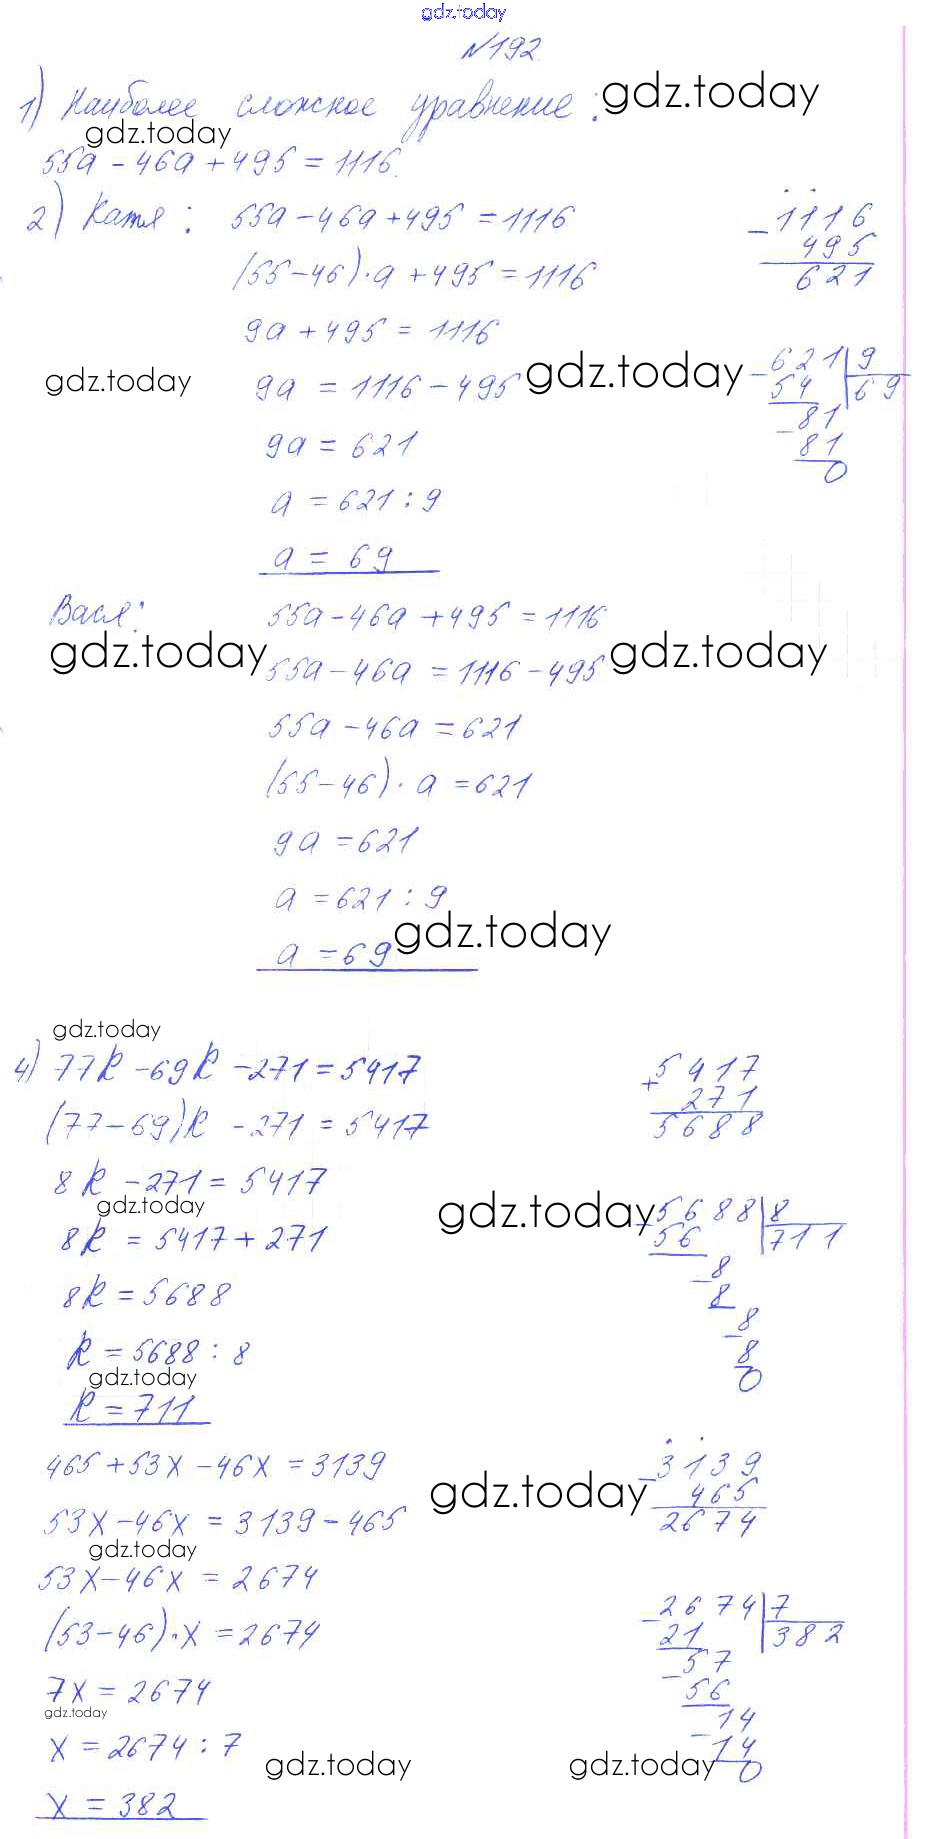 gdz.today
№192
1) Наиболее сложное уравнение: gdz.today
gdz.today
55a - 46a + 495 = 1116.
2) Катя: 55a - 46a + 495 = 1116
(55 - 46) · a + 495 = 1116
9a + 495 = 1116
gdz.today 9a = 1116 - 495 gdz.today
9a = 621
a = 621 : 9
a = 69
- 1116
495
621
- 621 | 9
54 | 69
- 81
81
0
Вася: 55a - 46a + 495 = 1116
gdz.today 55a - 46a = 1116 - 495 gdz.today
55a - 46a = 621
(55 - 46) · a = 621
9a = 621
a = 621 : 9
a = 69 gdz.today
gdz.today
4) 77k - 69k - 271 = 5417
(77 - 69)k - 271 = 5417
8k - 271 = 5417
gdz.today gdz.today
8k = 5417 + 271
8k = 5688
k = 5688 : 8
gdz.today
k = 711
+ 5417
271
5688
- 5688 | 8
56 | 711
- 8
8
- 8
8
0
465 + 53x - 46x = 3139
gdz.today
53x - 46x = 3139 - 465
gdz.today
53x - 46x = 2674
(53 - 46) · x = 2674
7x = 2674
gdz.today
x = 2674 : 7
gdz.today gdz.today
x = 382
- 3139
465
2674
- 2674 | 7
21 | 382
- 57
56
- 14
14
0